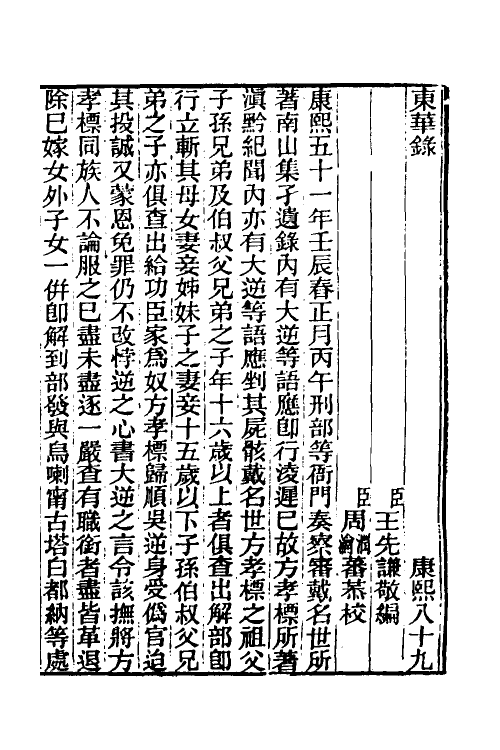 東華錄 康熙八十九
臣王先謙敬編
臣周潤蕃瀹蕃恭校
康熙五十一年壬辰春正月丙午刑部等衙門奏察審戴名世所
著南山集孑遺錄內有大逆等語應卽行凌遲已故方孝標所著
滇黔紀聞內亦有大逆等語應剉其屍骸戴名世方孝標之祖父
子孫兄弟及伯叔父兄弟之子年十六歲以上者俱查出解部卽
行立斬其母女妻妾姊妹子之妻妾十五歲以下子孫伯叔父兄
弟之子亦俱查出給功臣家爲奴方孝標歸順吳逆身受僞官迨
其投誠又蒙恩免罪仍不改悖逆之心書大逆之言令該撫將方
孝標同族人不論服之已盡未盡逐一嚴查有職銜者盡皆革退
除已嫁女外子女一併卽解到部發與烏喇甯古塔白都納等處